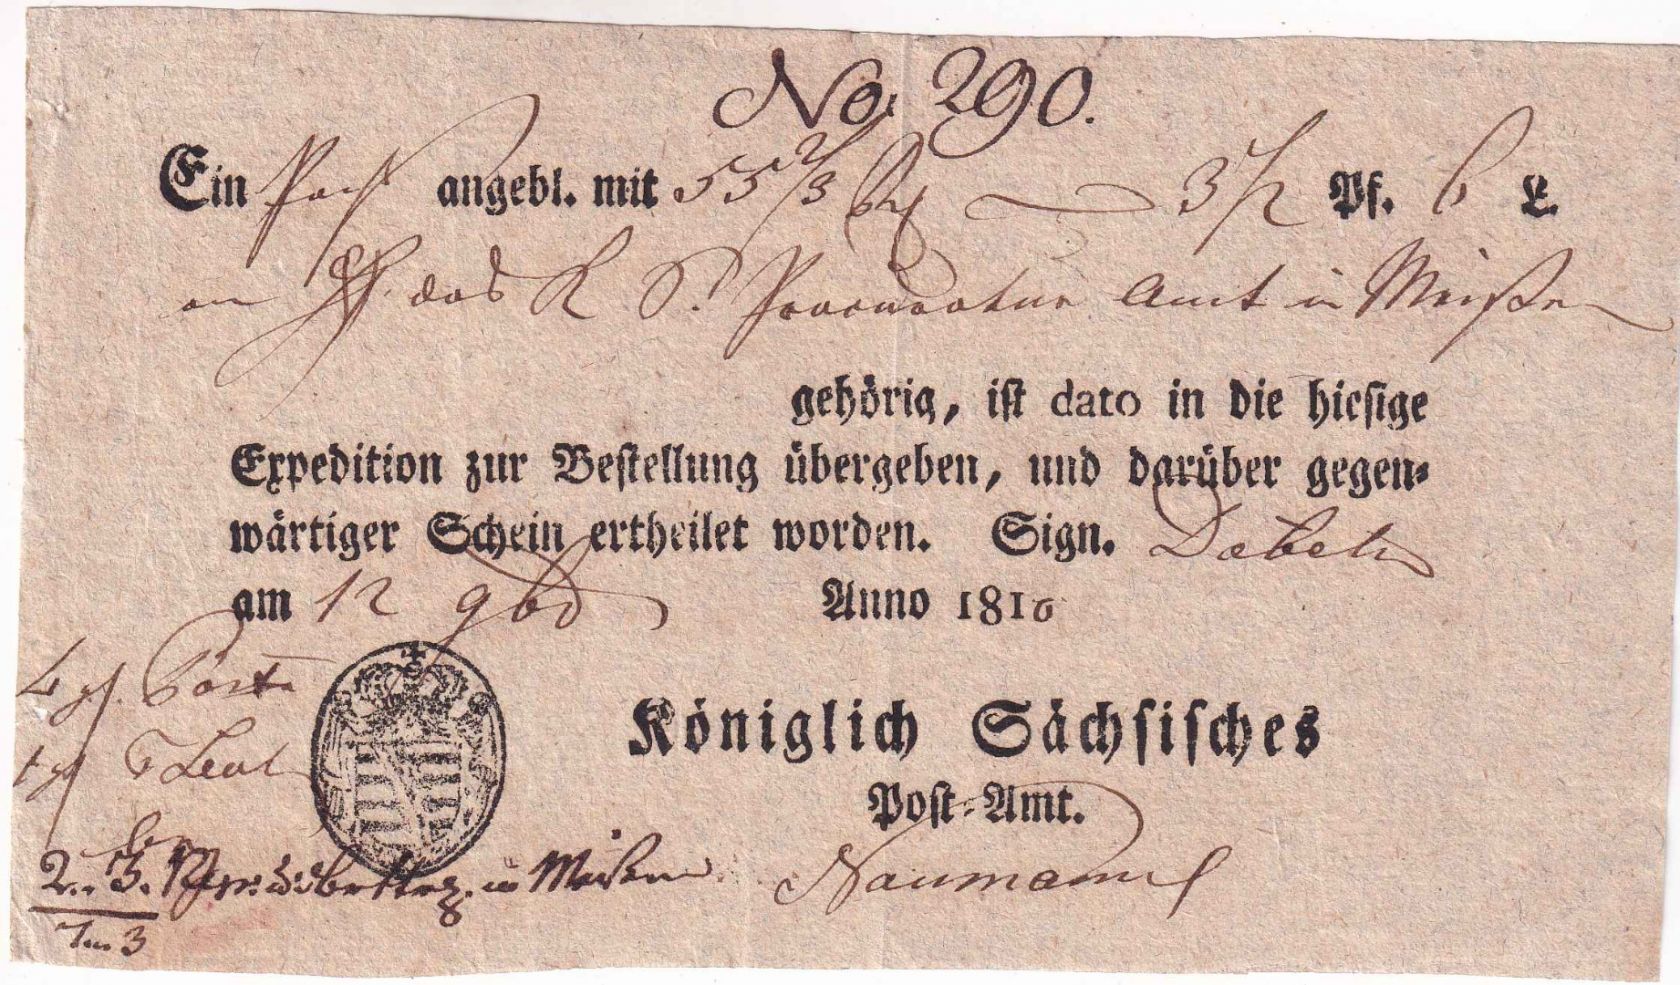 No. 290.
Ein Pack angebl. mit 55 2/3 3 1/2 Pf. 6 L.
an das K S. Procuratur Amt in Meißen
gehörig, ist dato in die hiesige
Expedition zur Bestellung übergeben, und darüber gegen-
wärtiger Schein ertheilet worden. Sign. Döbeln
am 12 9br Anno 1816
4 gl. Porto
1 gl
Königlich Sächsisches
Post-Amt.
2.. 3. in Meißen
Naumann
7 .. 3